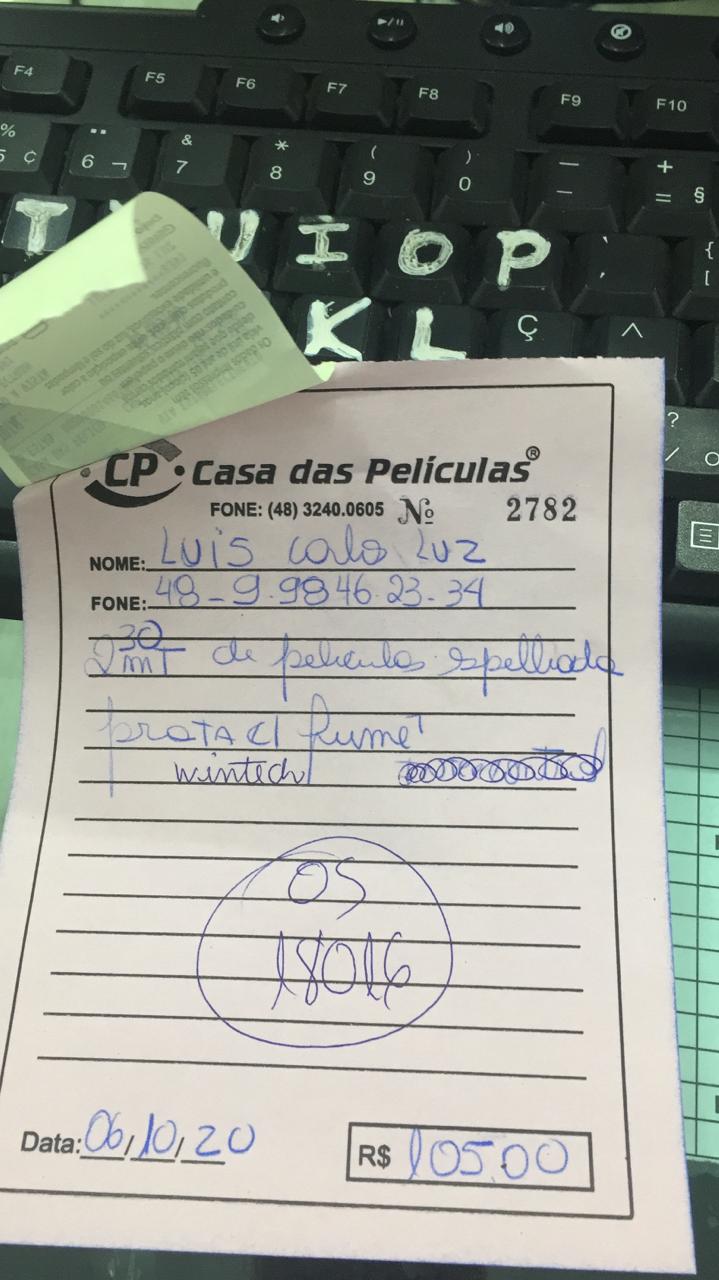 F4 F5 F6 F7 F8 F9 F10
% 5 ¢ 6 ¬ & 7 * 8 ( 9 ) 0 — + = §
T U I O P { [
K L Ç ^ ? /
CP Casa das Películas®
FONE: (48) 3240.0605 Nº 2782
NOME: LUIS Carlo LUZ
FONE: 48-9.9846.23-34
2 30 mT de peliculas espelhada
prata c/ fumê
wintech
OS
18016
Data: 06/10/20 R$ 105,00